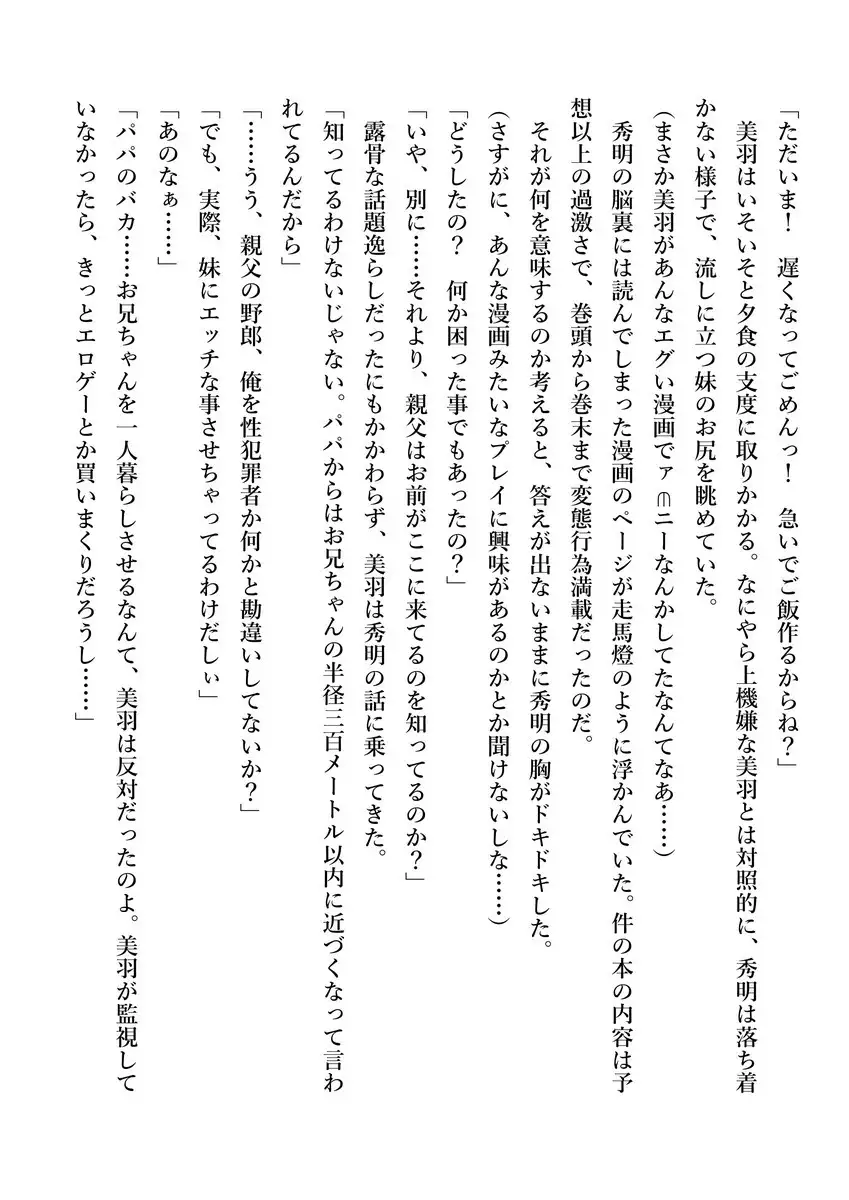 「ただいま!　遅くなってごめんっ!　急いでご飯作るからね?」
　美羽はいそいそと夕食の支度に取りかかる。なにやら上機嫌な美羽とは対照的に、秀明は落ち着
かない様子で、流しに立つ妹のお尻を眺めていた。
(まさか美羽があんなエグい漫画でァ∈ニーなんかしてたなんてなあ……)
　秀明の脳裏には読んでしまった漫画のページが走馬燈のように浮かんでいた。件の本の内容は予
想以上の過激さで、巻頭から巻末まで変態行為満載だったのだ。
　それが何を意味するのか考えると、答えが出ないままに秀明の胸がドキドキした。
(さすがに、あんな漫画みたいなプレイに興味があるのかとか聞けないしな……)
「どうしたの?　何か困った事でもあったの?」
「いや、別に……それより、親父はお前がここに来てるのを知ってるのか?」
　露骨な話題逸らしだったにもかかわらず、美羽は秀明の話に乗ってきた。
「知ってるわけないじゃない。パパからはお兄ちゃんの半径三百メートル以内に近づくなって言わ
れてるんだから」
「……うう、親父の野郎、俺を性犯罪者か何かと勘違いしてないか?」
「でも、実際、妹にエッチな事させちゃってるわけだしぃ」
「あのなぁ……」
「パパのバカ……お兄ちゃんを一人暮らしさせるなんて、美羽は反対だったのよ。美羽が監視して
いなかったら、きっとエロゲーとか買いまくりだろうし……」